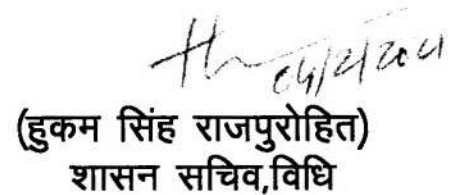 (हुकम सिंह राजपुरोहित)
शासन सचिव,विधि